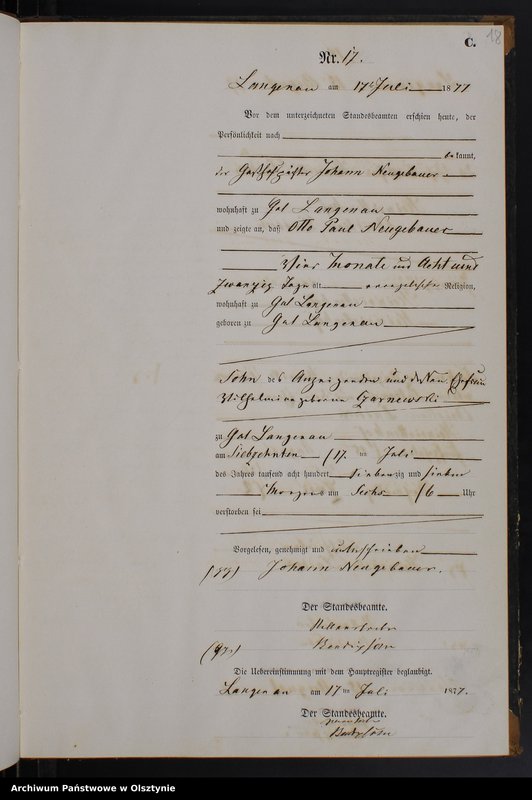 C. 18
Nr. 17.
Langenau am 17t Juli 1877
Vor dem unterzeichneten Standesbeamten erschien heute, der
Persönlichkeit nach
bekannt,
der Johann Neugebauer
wohnhaft zu Gut Langenau
und zeigte an, daß Otto Paul Neugebauer
Vier Monate und Acht und
zwanzig Tage alt evangelischer Religion,
wohnhaft zu Gut Langenau
geboren zu Gut Langenau
Sohn des Anzeigenden und dessen Ehefrau
Wilhelmine geborne Czarnewski
zu Gut Langenau
am Siebzehnten /17 ten Juli
des Jahres tausend acht hundert siebenzig und sieben
Morgens um Sechs /6 Uhr
verstorben sei
Vorgelesen, genehmigt und unterschrieben
Johann Neugebauer.
Der Standesbeamte.
Die Uebereinstimmung mit dem Hauptregister beglaubigt.
Langenau am 17 ten Juli 1877.
Der Standesbeamte.
Archiwum Państwowe w Olsztynie